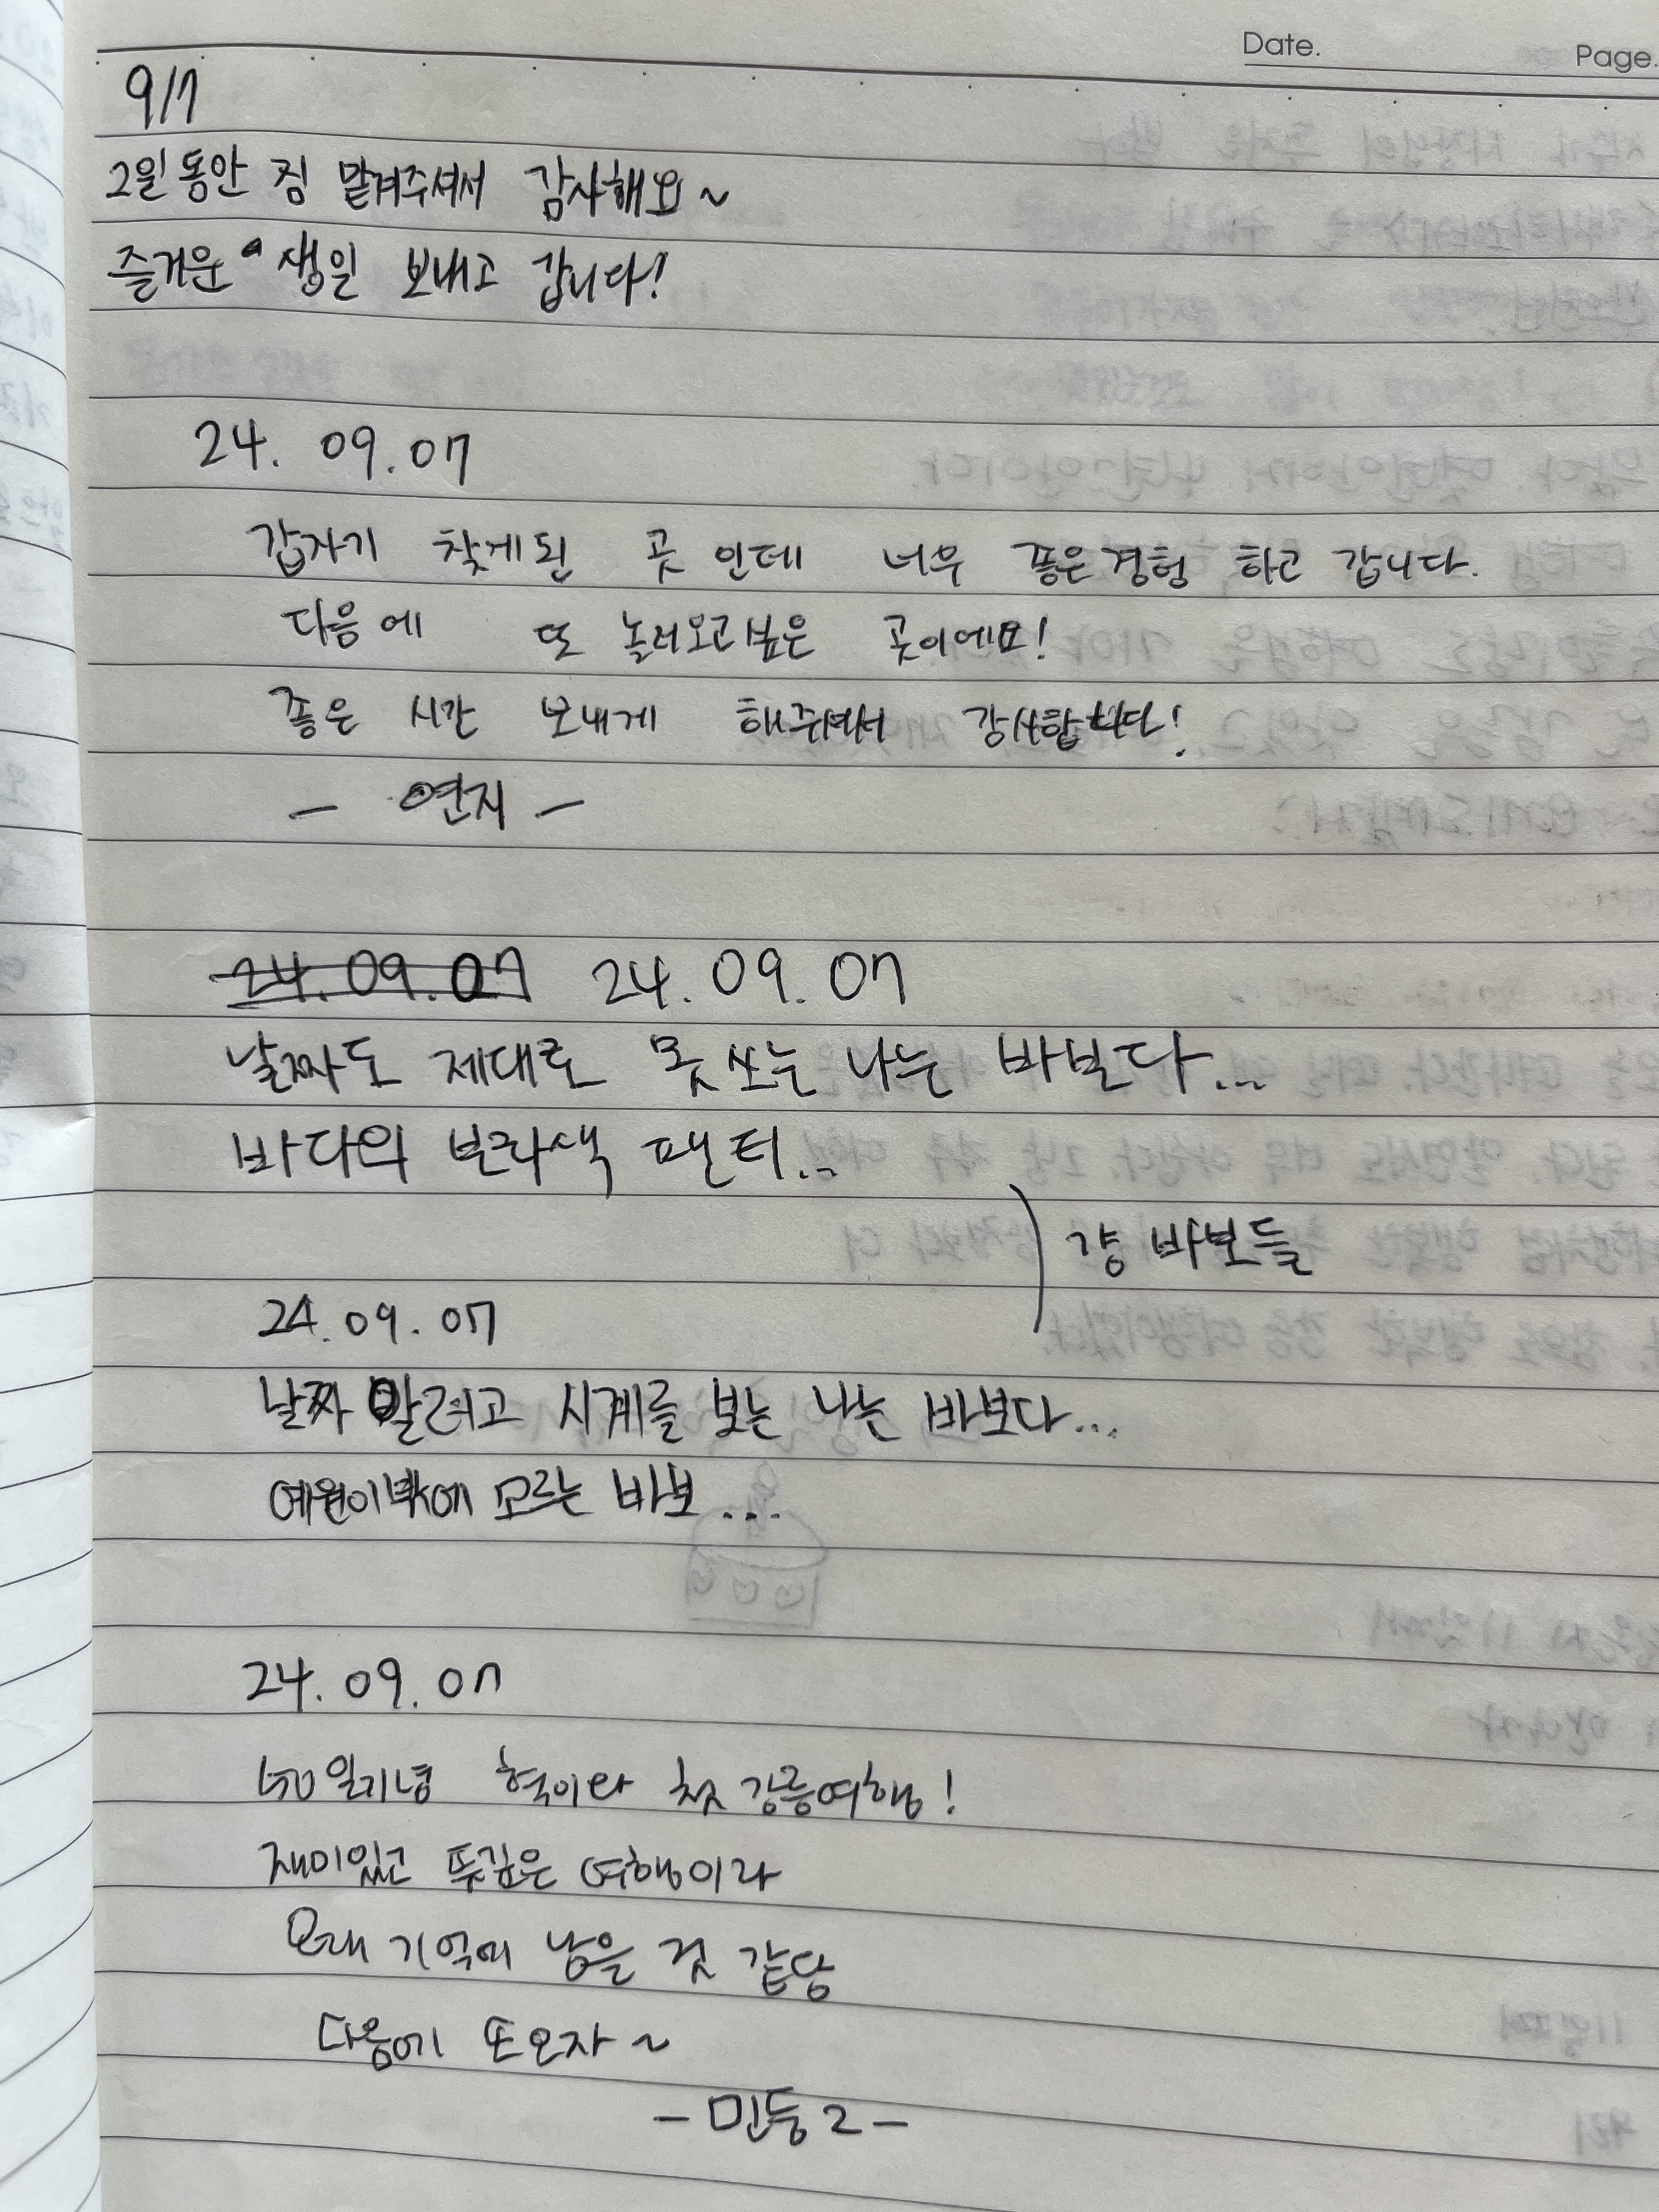 Date.
Page.
9/7
2일 동안 짐 맡겨주셔서 감사해요~
즐거운 생일 보내고 갑니다!
24. 09. 07
갑자기 찾게된 곳 인데 너무 좋은경험 하고 갑니다.
다음에 또 놀러오고싶은 곳이에요!
좋은 시간 보내게 해주셔서 감사합니다!
- 연지 -
24. 09. 07 24. 09. 07
날짜도 제대로 못 쓰는 나는 바보다...
바다의 보라색 팬티...
걍 바보들
24. 09. 07
날짜 알려고 시계를 보는 나는 바보다...
예원이밖에 모르는 바보...
24. 09. 07
일기념 혁이랑 첫 강릉여행!
재미있고 뜻깊은 여행이라
오래 기억에 남을 것 같당
다음에 또오자~
- 민둥2 -